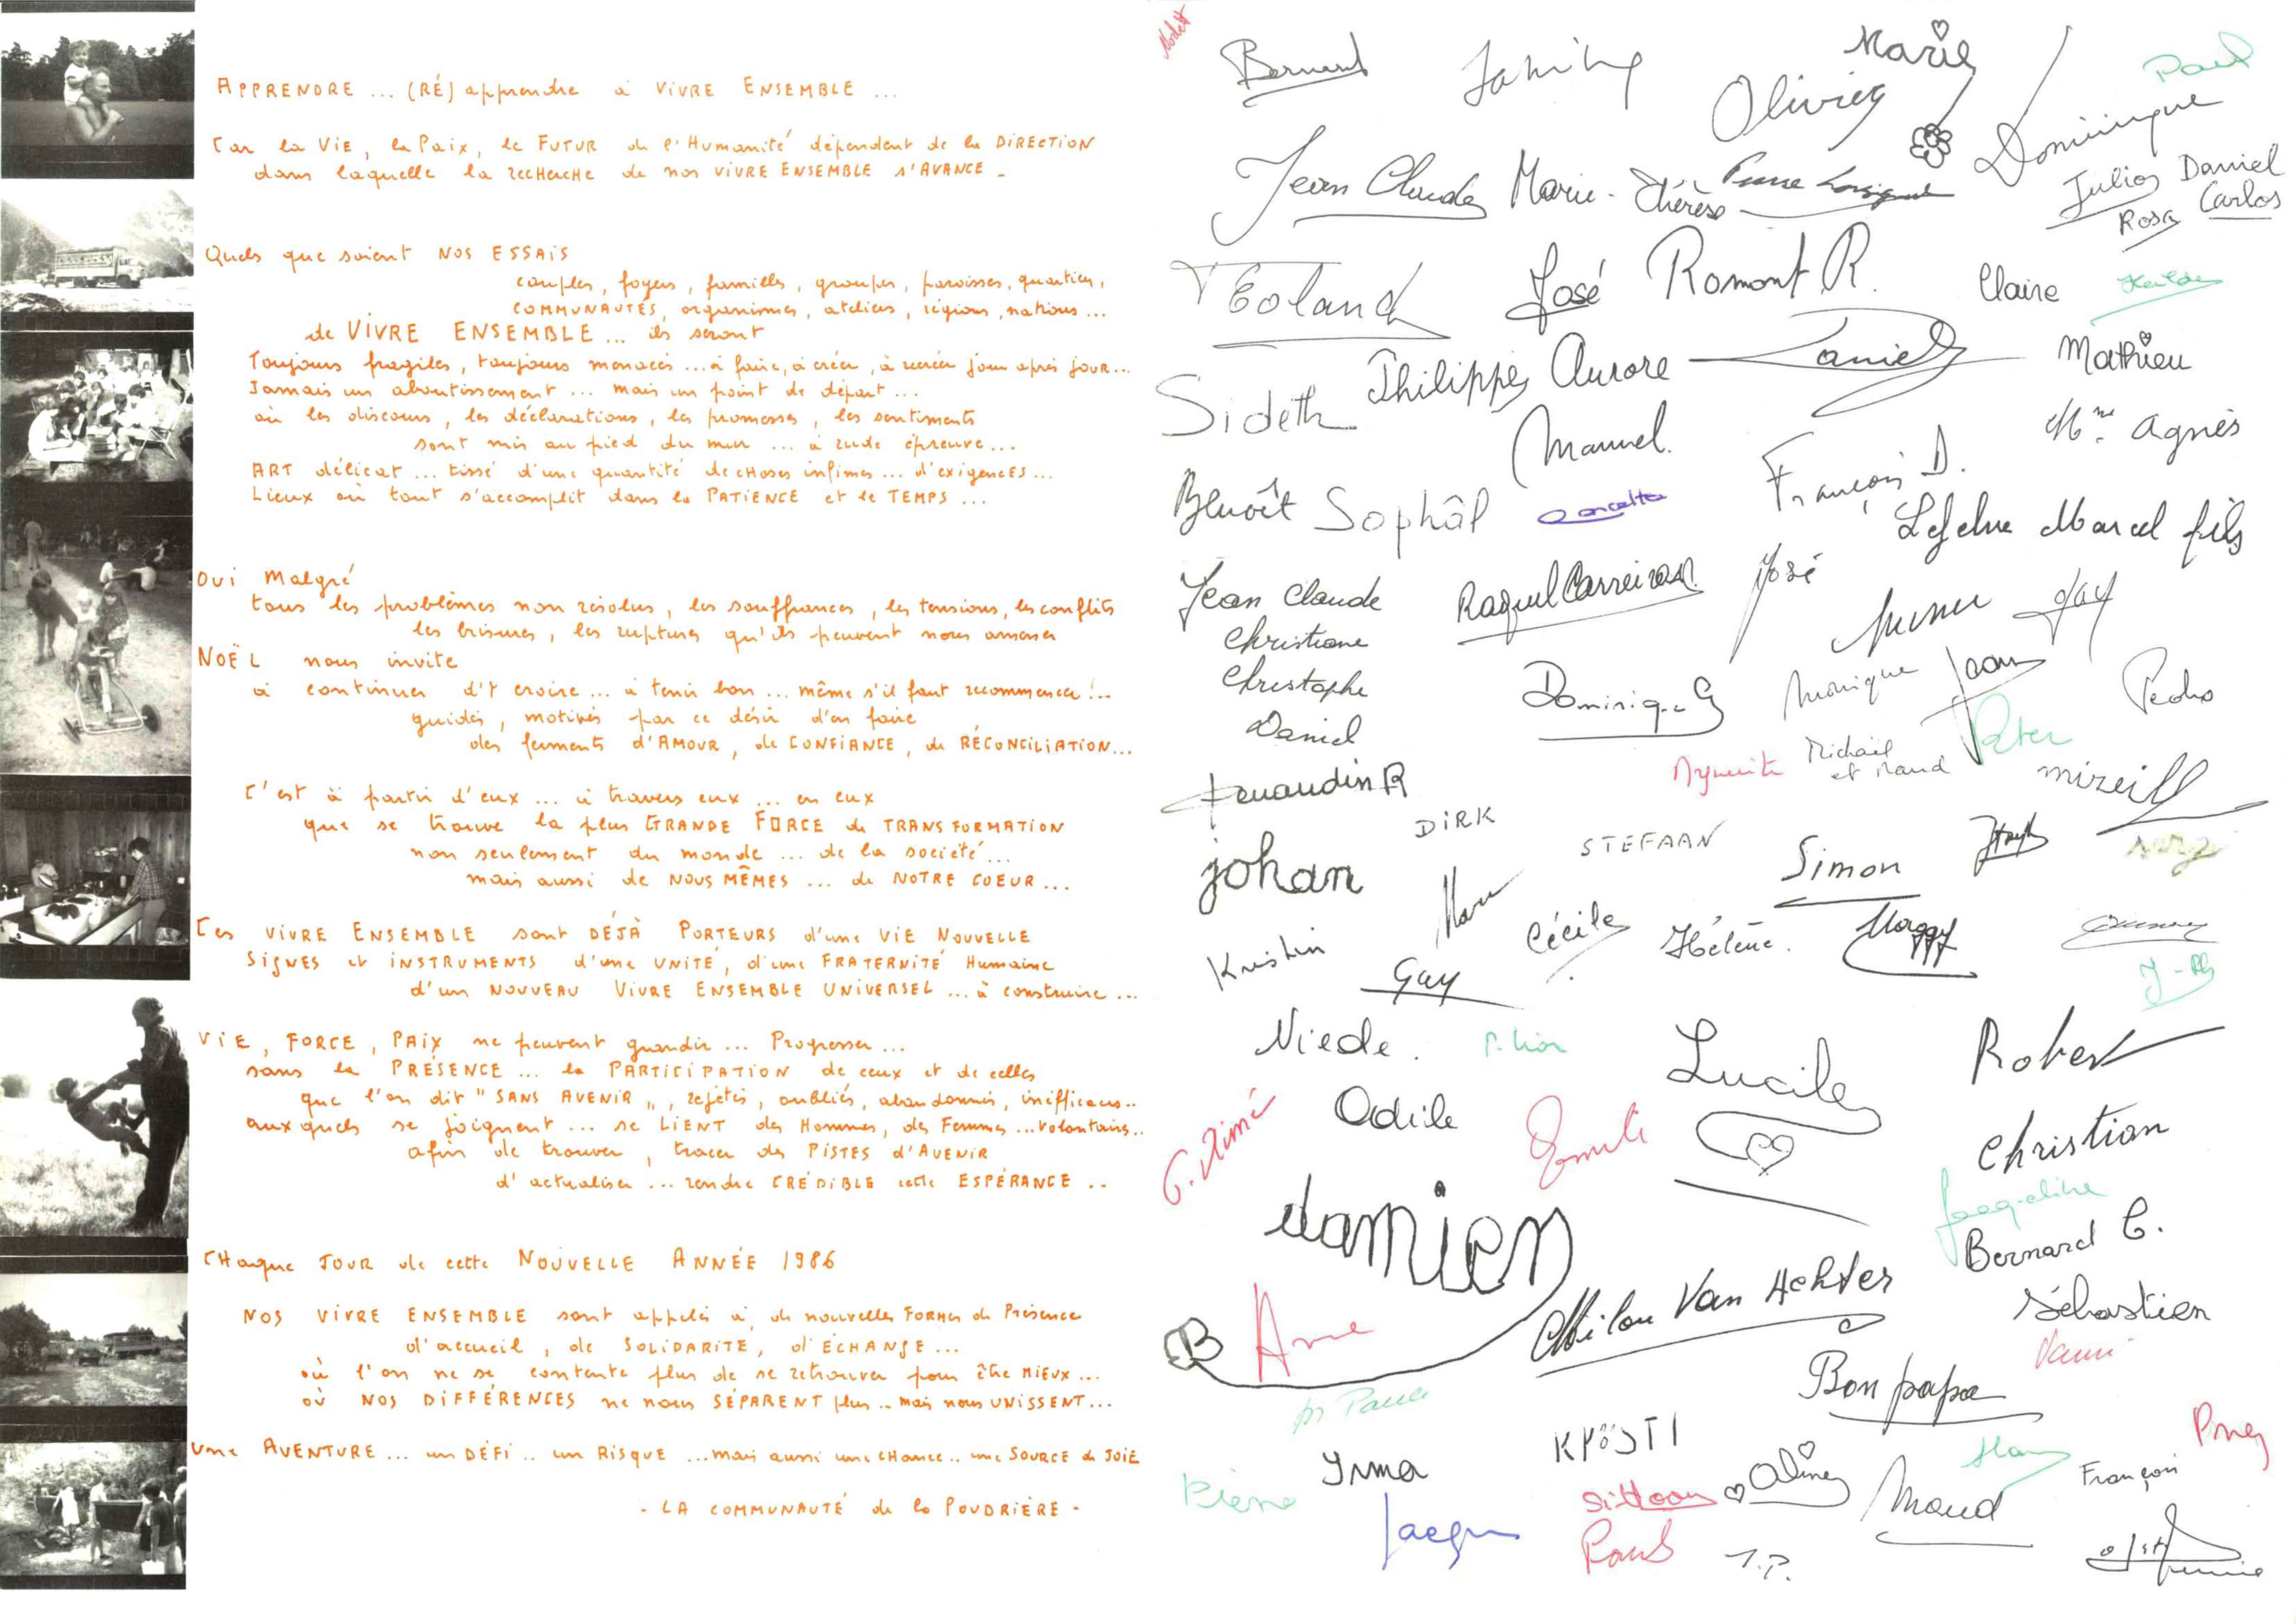 APPRENDRE ... (RÉ) apprendre à VIVRE ENSEMBLE ...
Car la VIE, la Paix, le FUTUR de l'Humanité dépendent de la DIRECTION
dans laquelle la RECHERCHE de nos VIVRE ENSEMBLE s'AVANCE -
Quels que soient NOS ESSAIS
couples, foyers, familles, groupes, paroisses, quartiers,
COMMUNAUTÉS, organismes, ateliers, régions, nations ...
de VIVRE ENSEMBLE ... ils seront
Toujours fragiles, toujours menacés ... à faire, à créer, à recréer jour après jour...
Jamais un aboutissement ... mais un point de départ ...
où les discours, les déclarations, les promesses, les sentiments
sont mis au pied du mur ... à rude épreuve ...
ART délicat ... tissé d'une quantité de choses infimes ... d'exigences ...
Lieux où tout s'accomplit dans la PATIENCE et le TEMPS ...
OUI Malgré
tous les problèmes non résolus, les souffrances, les tensions, les conflits
les brisures, les ruptures qu'ils peuvent nous amener
NOËL nous invite
à continuer d'y croire ... à tenir bon ... même s'il faut recommencer !..
guidés, motivés par ce désir d'en faire
des ferments d'AMOUR, de CONFIANCE, de RÉCONCILIATION...
C'est à partir d'eux ... à travers eux ... en eux
que se trouve la plus GRANDE FORCE de TRANSFORMATION
non seulement du monde ... de la société ...
mais aussi de NOUS MÊMES ... de NOTRE COEUR ...
Ces VIVRE ENSEMBLE sont DÉJÀ PORTEURS d'une VIE NOUVELLE
SIGNES et INSTRUMENTS d'une UNITÉ, d'une FRATERNITÉ Humaine
d'un NOUVEAU VIVRE ENSEMBLE UNIVERSEL ... à construire ...
VIE, FORCE, PAIX ne peuvent grandir ... Progresser ...
sans la PRÉSENCE ... la PARTICIPATION de ceux et de celles
que l'on dit "SANS AVENIR", rejetés, oubliés, abandonnés, inefficaces..
auxquels se joignent ... se LIENT des Hommes, des Femmes ... volontaires..
afin de trouver, tracer des PISTES d'AVENIR
d'actualiser ... rendre CRÉDIBLE cette ESPÉRANCE ..
Chaque JOUR de cette NOUVELLE ANNÉE 1986
NOS VIVRE ENSEMBLE sont appelés à de nouvelles FORMES de Présence
d'accueil, de SOLIDARITÉ, d'ÉCHANGE ...
où l'on ne se contente plus de se retrouver pour être MIEUX ...
où NOS DIFFÉRENCES ne nous SÉPARENT plus .. mais nous UNISSENT ...
Une AVENTURE ... un DÉFI .. un RISQUE ... mais aussi une CHANCE .. une SOURCE de JOIE
- LA COMMUNAUTÉ de la POUDRIÈRE -
Bernard
Marie
Olivier
Paul
Dominique
Jean Claude
Marie-Thérèse
Julio
Daniel
Rosa
Carlos
José
Romont R.
Claire
Sideth
Philippe
Aurore
Daniel
Mathieu
Manuel
François D.
Mme Agnès
Benoît
Sophâl
Concetta
Lefebvre Marcel fils
Jean Claude
Raquel Carreiras
José
Guy
Christiane
Christophe
Daniel
Dominique G
Monique
Jean
Pedro
Michaël
et Maud
Peter
Renaudin R
Mireille
johan
DIRK
STEFAAN
Simon
Serge
Kristin
Marc
Cécile
Hélène.
Maggy
Guy
Niede.
Lucile
Robert
G. Aimé
Odile
Christian
Jacqueline
damien
Bernard C.
Anne
Milou Van Achter
Sébastien
B
Bon papa
Pierre
Irma
KYÖSTI
Aline
Maud
François
Jacques
Paul
J.P.